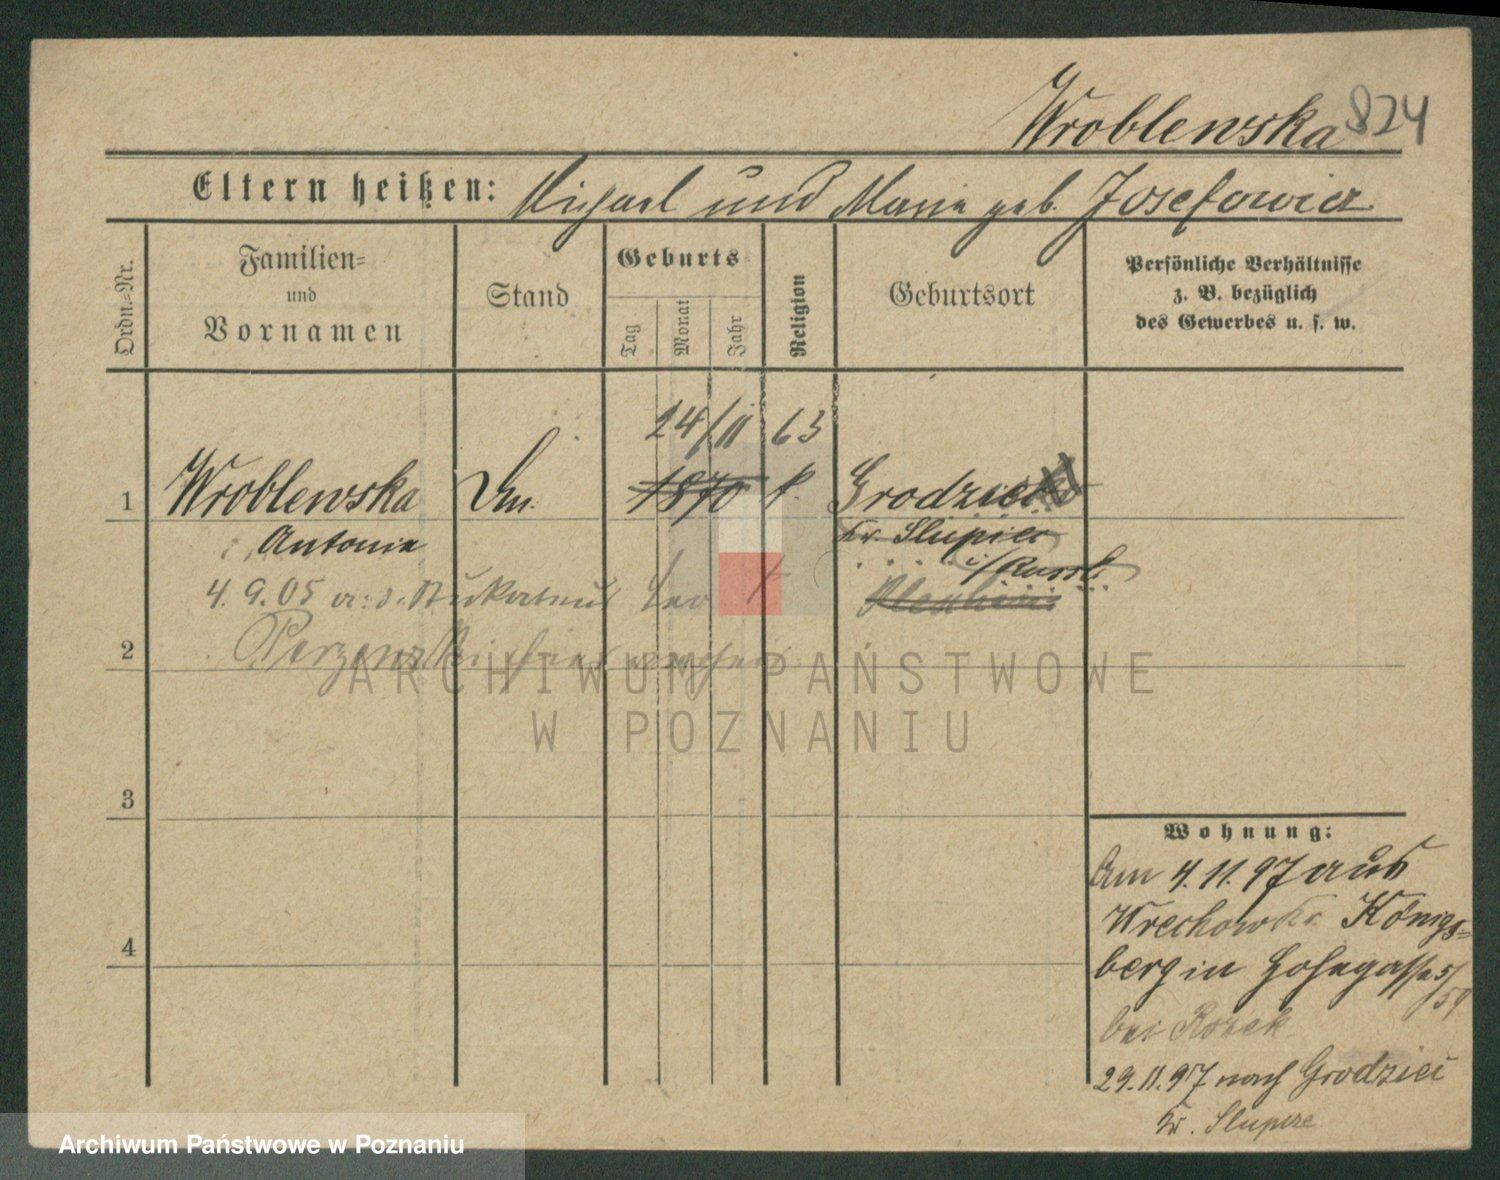 Wroblewska 824
Eltern heißen: Michael und Marie geb. Josefowicz
Ordn.=Nr.
Familien= und Vornamen
Stand
Geburts=
Tag
Monat
Jahr
Religion
Geburtsort
Persönliche Verhältnisse
z. B. bezüglich
des Gewerbes u. s. w.
24/11 63
1 Wroblewska 1870 k. Grodziec
Antonie Kr. Slupiec
i/Russl.
4. 9. 05
2
3
4
Wohnung:
Am 4.11.97 aus
Wrechowko Königs=
berg in Hohegasse 5/
bei Rozek
29.11.97 nach Grodziec
Kr. Slupce
ARCHIWUM PAŃSTWOWE
W POZNANIU
Archiwum Państwowe w Poznaniu